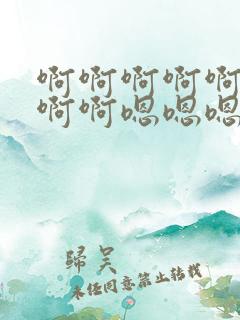 啊啊啊啊啊
啊啊嗯嗯嗯
歸吴
未经同意禁止转载